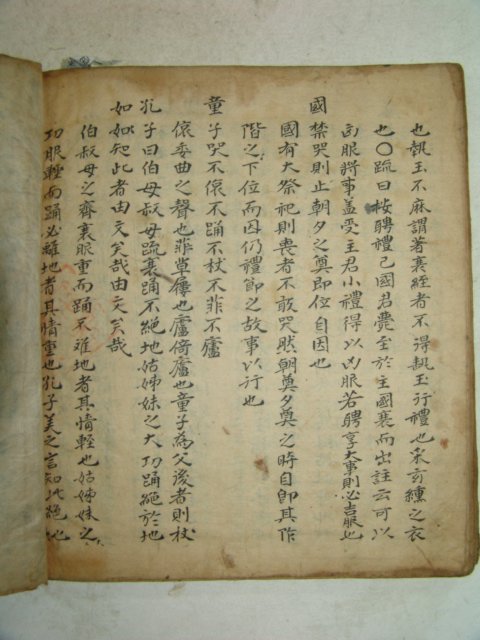 也執玉不麻謂著衰絰者不得執玉行禮也采玄纁之衣
也○疏曰按聘禮己國君薨至於主國衰而出註云可以
凶服將事盖受主君小禮得以凶服若聘享大事則必吉服也
國禁哭則止朝夕之奠即位自因也
國有大祭祀則喪者不敢哭然朝奠夕奠之時自即其阼
階之下位而因仍禮節之故事以行也
童子哭不偯不踊不杖不菲不廬
偯委曲之聲也菲草屨也廬倚廬也童子為父後者則杖
孔子曰伯母叔母疏衰踊不絕地姑姊妹之大功踊絕於地
如如知此者由文矣哉由文矣哉
伯叔母之齊衰服重而踊不離地者其情輕也姑姊妹之
功服輕而踊必離地者其情重也孔子美之言知此絕也